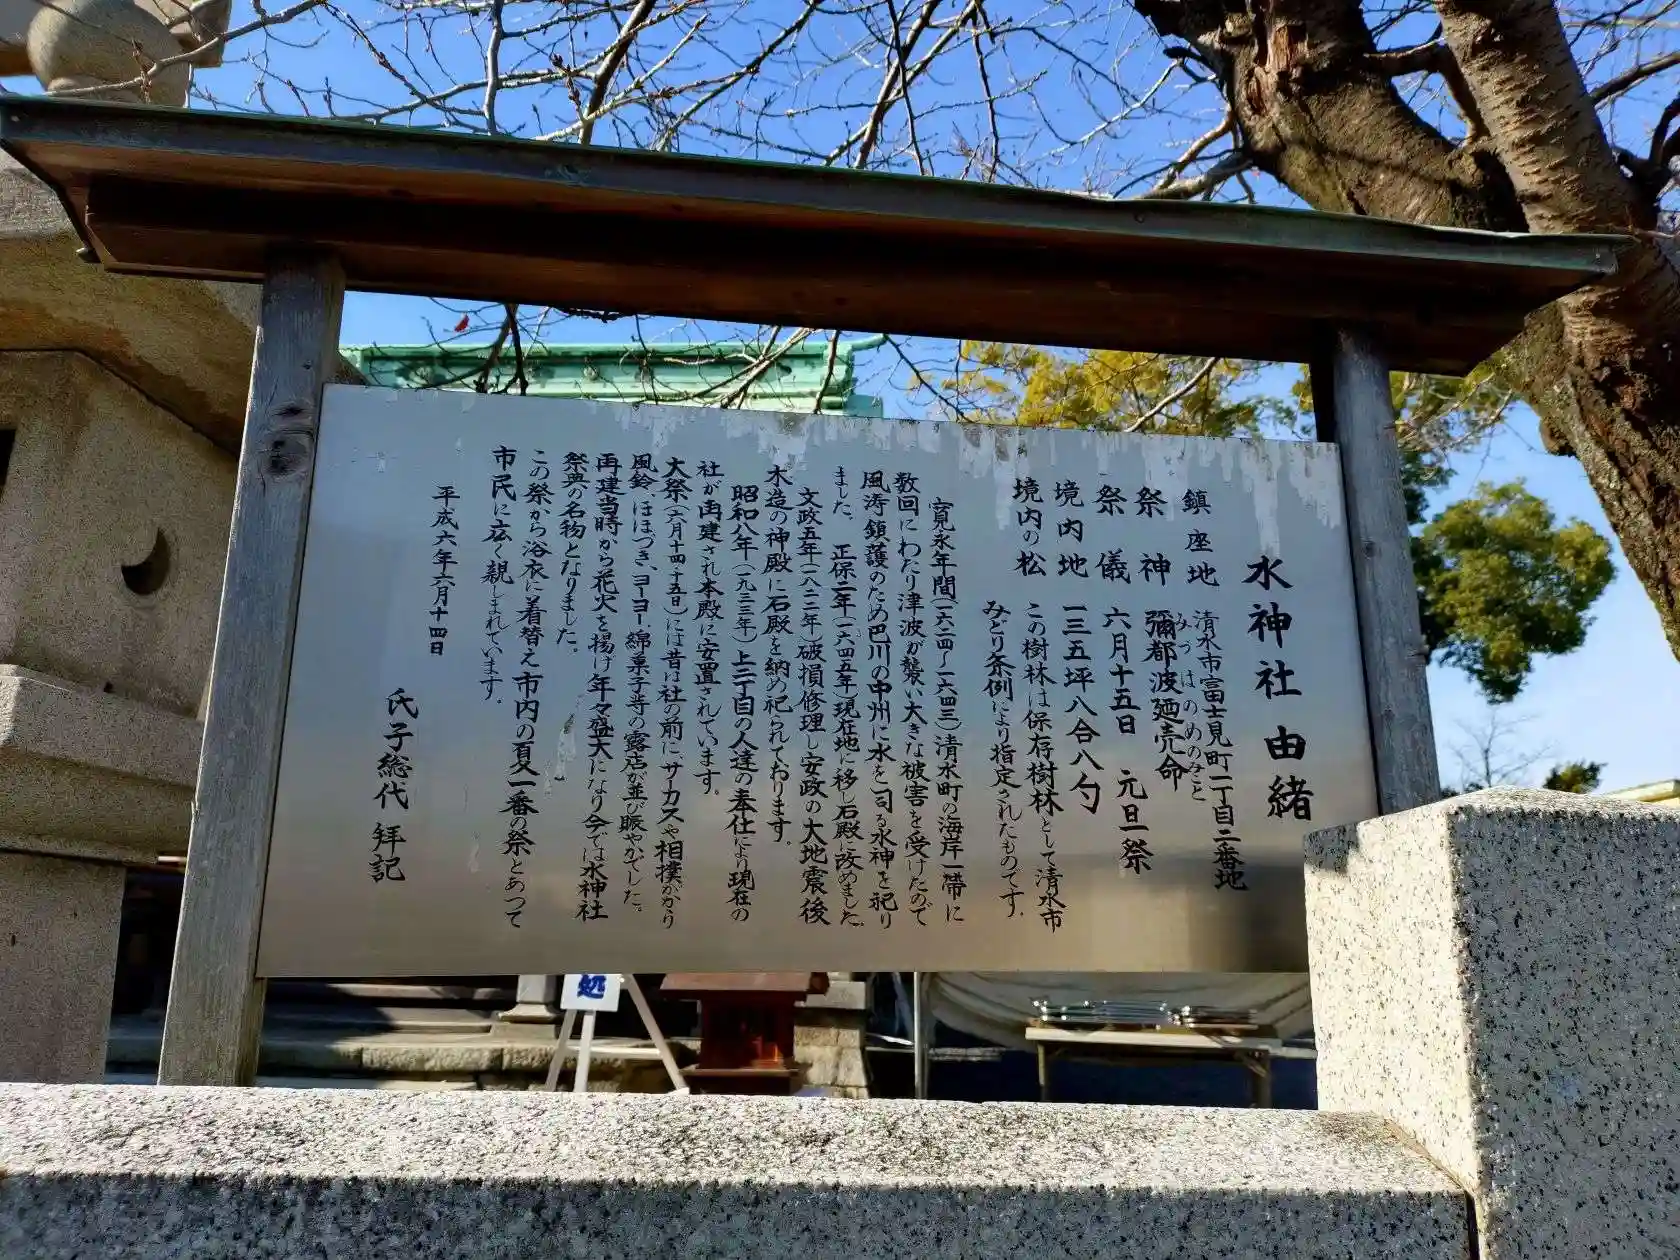 水神社 由緒
鎮座地 清水市富士見町一丁目二番地
祭神 彌都波廼売命
みづはのめのみこと
祭儀 六月十五日 元旦祭
境内地 一三五坪八合八勺
境内の松 この樹林は保存樹林として清水市
みどり条例により指定されたものです.
寛永年間(一六二四〜一六四三)清水町の海岸一帯に
数回にわたり津波が襲い大きな被害を受けたので
風涛鎮護のため巴川の中州に水を司る水神を祀り
ました. 正保二年(一六四五年)現在地に移し石殿に改めました.
文政五年(一八二二年)破損修理し安政の大地震後
木造の神殿に石殿を納め祀られております.
昭和八年(一九三三年)上二丁目の人達の奉仕により現在の
社が再建され本殿に安置されています.
大祭(六月十四・十五日)には昔は社の前にサーカスや相撲がかかり
風鈴、ほほづき、ヨーヨー、綿菓子等の露店が並び賑やかでした.
再建当時から花火を揚げ年々盛大になり今では水神社
祭典の名物となりました.
この祭から浴衣に着替え市内の夏一番の祭とあって
市民に広く親しまれています.
平成六年六月十四日
氏子総代 拝記
処